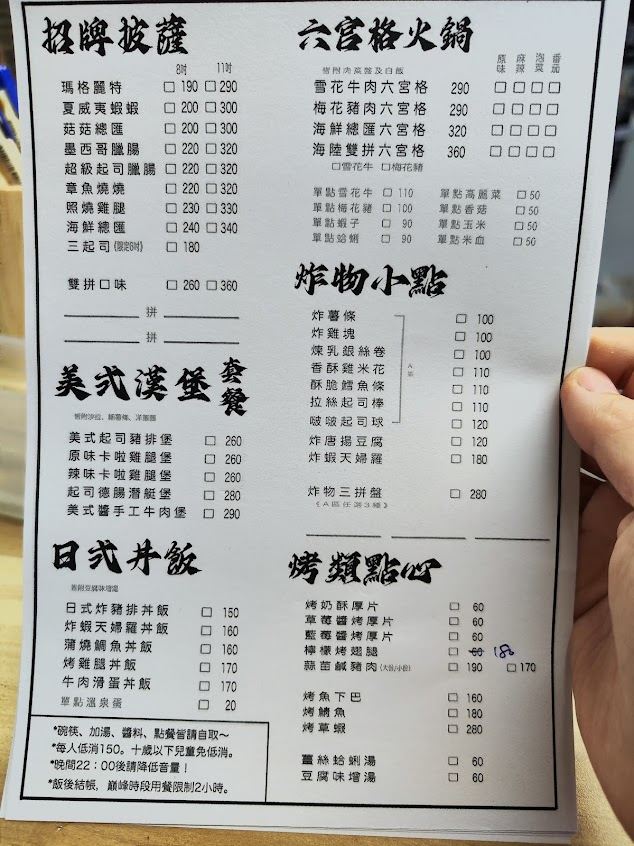 招牌披薩
8吋 11吋
瑪格麗特 □190 □290
夏威夷蝦蝦 □200 □300
菇菇總匯 □200 □300
墨西哥臘腸 □220 □320
超級起司臘腸 □220 □320
章魚燒燒 □220 □320
照燒雞腿 □230 □330
海鮮總匯 □240 □340
三起司(限定6吋) □180
雙拼口味 □260 □360
拼
拼
美式漢堡套餐
皆附沙拉、細薯條、洋蔥圈
美式起司豬排堡 □260
原味卡啦雞腿堡 □260
辣味卡啦雞腿堡 □260
起司德腸潛艇堡 □280
美式醬手工牛肉堡 □290
日式丼飯
皆附豆腐味增湯
日式炸豬排丼飯 □150
炸蝦天婦羅丼飯 □160
蒲燒鯛魚丼飯 □160
烤雞腿丼飯 □170
牛肉滑蛋丼飯 □170
單點溫泉蛋 □20
*碗筷、加湯、醬料、點餐皆請自取～
*每人低消150。十歲以下兒童免低消。
*晚間22：00後請降低音量！
*飯後結帳，巔峰時段用餐限制2小時。
六宮格火鍋
皆附肉菜盤及白飯
原味 麻辣 泡菜 番茄
雪花牛肉六宮格 290 □□□□
梅花豬肉六宮格 290 □□□□
海鮮總匯六宮格 320 □□□□
海陸雙拼六宮格 360 □□□□
□雪花牛 □梅花豬
單點雪花牛 □110 單點高麗菜 □50
單點梅花豬 □100 單點香菇 □50
單點蝦子 □90 單點玉米 □50
單點蛤蜊 □90 單點米血 □50
炸物小點
炸薯條 □100
炸雞塊 □100
煉乳銀絲卷 □100
香酥雞米花 □110
酥脆鱈魚條 □110
拉絲起司棒 □110
啵啵起司球 □120
A區
炸唐揚豆腐 □120
炸蝦天婦羅 □180
炸物三拼盤 □280
《A區任選3種》
烤類點心
烤奶酥厚片 □60
草莓醬烤厚片 □60
藍莓醬烤厚片 □60
檸檬烤翅腿 □60 180
蒜苗鹹豬肉(大份/小份) □190 □170
烤魚下巴 □160
烤鯖魚 □180
烤草蝦 □280
薑絲蛤蜊湯 □60
豆腐味增湯 □60